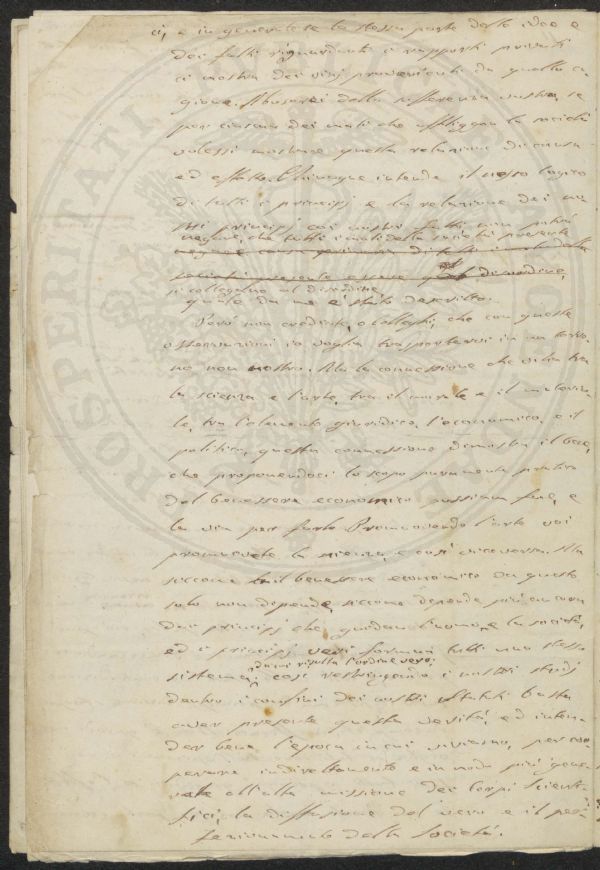 ci, e in generale se la stessa parte delle idee e
dei fatti riguardanti i rapporti privati
ci mostra dei vizj provenienti da quella ca-
gione. Abuserei della sofferenza vostra, se
per ciascun dei mali che affliggon la società
volessi mostrare questa relazione di causa
ed effetto. Chiunque intende il nesso logico
di tutti i principj e la relazione dei
principj coi nostri fatti, non potrà
negare, che tutti i mali della società presente
si collegano al disordine,
quale da me è stato descritto.
Però non crediate, o Colleghi, che con queste
osservazioni io voglia trasportarvi in un terre-
no non nostro. Ma la connessione che v'ha tra
la scienza e l'arte, tra il morale e il materia-
le, tra l'elemento giuridico, l'economico, e il
politico, questa connessione dimostra il bene,
che proponendoci lo scopo puramente pratico
del benessere economico possiam fare, e
la via per farlo. Promuovendo l'arte voi
promuovete la scienza, e così viceversa. Ma
siccome il benessere economico da questo
solo non dipende, siccome dipende più ancora
dai principj che guidan l'uomo, e la società,
ed i principj veri forman tutti uno stesso
sistema, da cui risulta l'ordine vero;
così restringendo i nostri studj
dentro i confini dei nostri Statuti basta
aver presente questa verità, ed inten-
der bene l'epoca in cui viviamo, per coo-
perare indirettamente e in modo più gene-
rale all'alta missione dei Corpi Scienti-
fici, la diffusione del vero e il per-
fezionamento della Società.